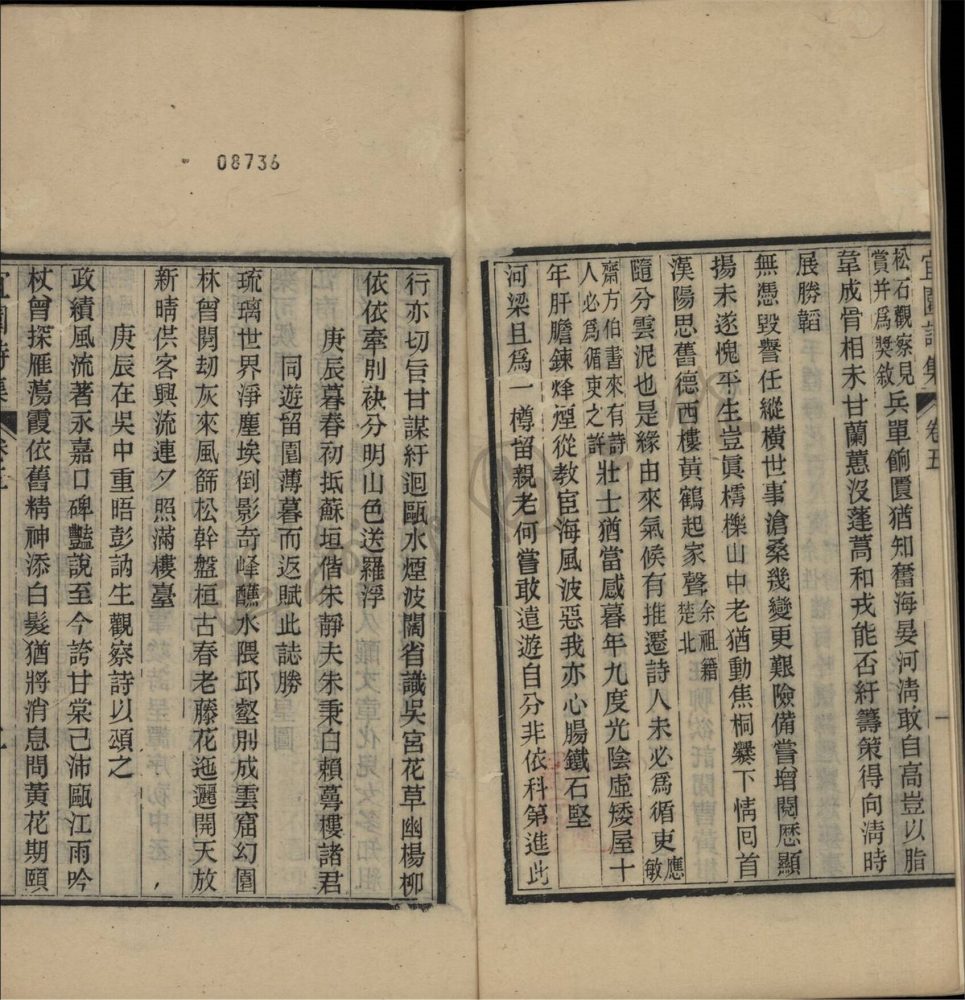 宜園詩集 卷五 一
松石觀察見
賞并爲獎敘
兵單餉匱猶知奮海晏河淸敢自高豈以脂
韋成骨相未甘蘭蕙沒蓬蒿和戎能否紓籌策得向淸時
展勝韜
無憑毀譽任縱橫世事滄桑幾變更艱險備嘗增閱歷顯
揚未遂愧平生豈眞樗櫟山中老猶動焦桐爨下情囘首
漢陽思舊德西樓黃鶴起家聲
余祖籍
楚北
隨分雲泥也是緣由來氣候有推遷詩人未必爲循吏
應
敏
齋方伯書來有詩
人必爲循吏之許
壯士猶當感暮年九度光陰虛矮屋十
年肝膽鍊烽煙從教宦海風波惡我亦心腸鐵石堅
河梁且爲一樽留親老何嘗敢遠遊自分非依科第進此
08736
行亦切旨甘謀紆迴甌水煙波闊省識吳宮花草幽楊柳
依依牽別袂分明山色送羅浮
庚辰暮春初抵蘇垣偕朱靜夫朱秉白賴蕚樓諸君
同遊留園薄暮而返賦此誌勝
琉璃世界淨塵埃倒影奇峰蘸水隈邱壑別成雲窟幻園
林曾閱劫灰來風篩松幹盤桓古春老藤花迤邐開天放
新晴供客興流連夕照滿樓臺
庚辰在吳中重晤彭訥生觀察詩以頌之
政績風流著永嘉口碑豔說至今誇甘棠已沛甌江雨吟
杖曾探雁蕩霞依舊精神添白髮猶將消息問黃花期頤
宜園詩集